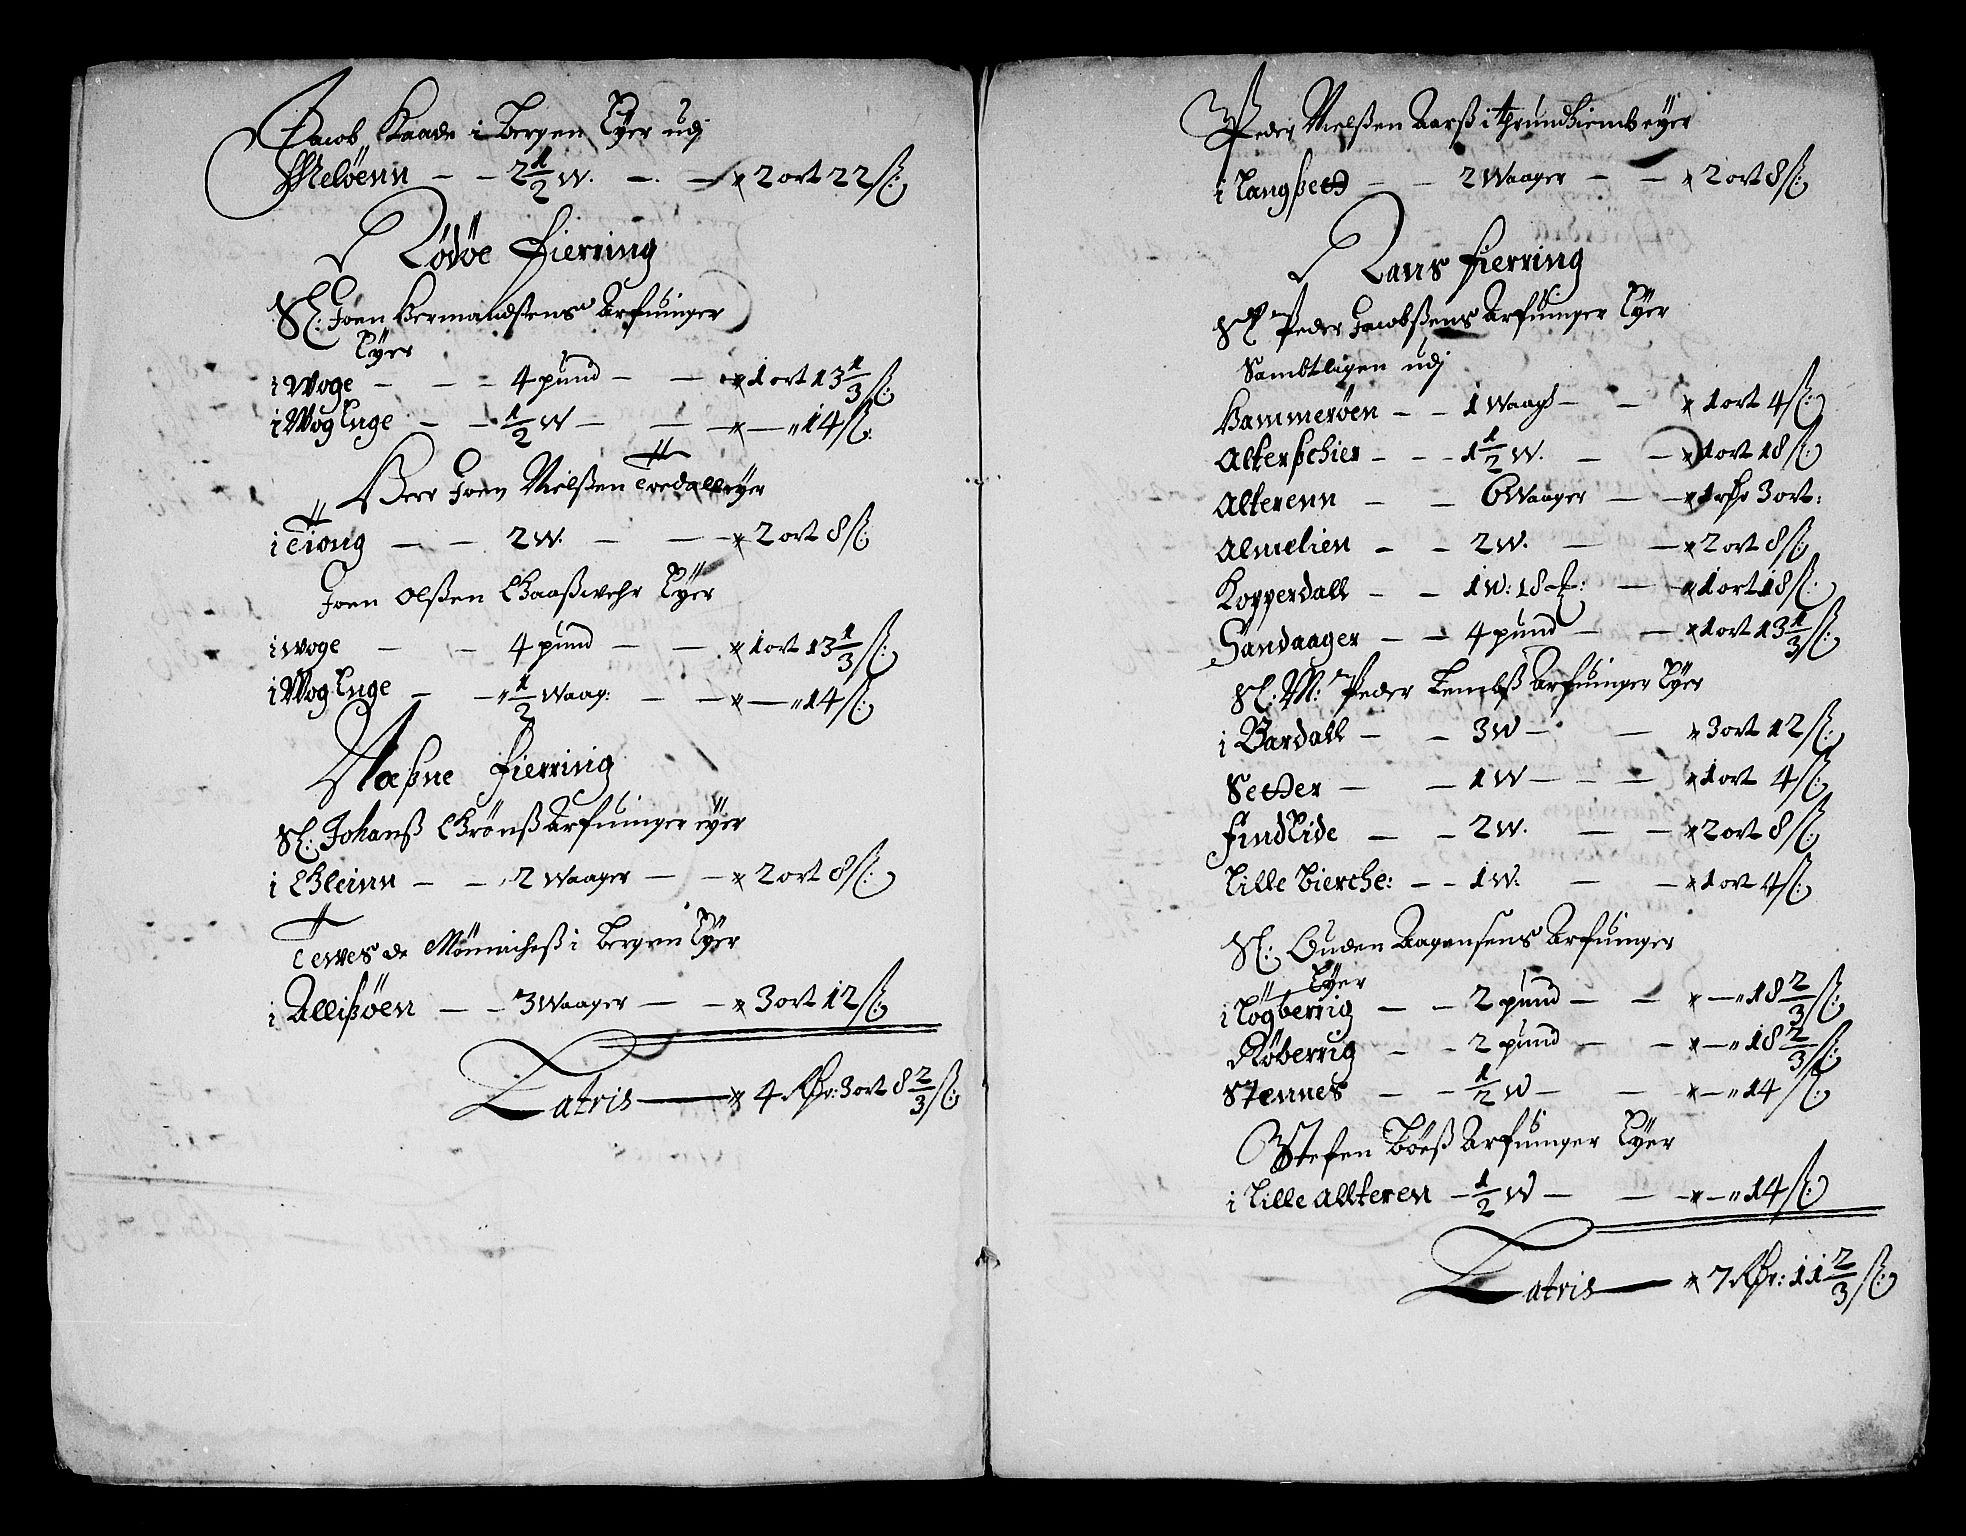 Jacob Kaade i Bergen Eyer udj
Meløenn - - 2 1/2 W. - - 2 ort 22 ß:
Rødøe Fierring
Sl: Joen Hermandsens Arfuinger
Eyer
i Woge - - - 4 pund - - 1 ort 13 1/3 ß:
i Wog Enge - - 1/2 W - - - - " 14 ß:
Herr Joen Nielßen eyer
i Tiong - - 2 W. - - 2 ort 8 ß:
Joen Olßen Eyer
i woge - - 4 pund - - 1 ort 13 1/3 ß:
i Wog Enge - - " 1/2 Waag: - - - " 14 ß:
Næßne Fierring
Sl: Johanß Grönß Arfuinger eyer
i Gleinn - - 2 Waager - - 2 ort 8 ß:
Tewes de Mönnicheß i Bergen Eyer
i Allißøen - - 3 Waager - - 3 ort 12 ß:
Latris - 4 Rdr: 3 ort 8 2/3 ß:
Peder Nielßen Aarß i Thrundhiemb eyer
i Langßett - - 2 Waager - - 2 ort 8 ß:
Rans Fierring
Sl Peder Jacobßens Arfuinger Eyer
Sambtligen udj
Hammerøen - - 1 Waag - - 1 ort 4 ß:
Alterßchier - - - 1 1/2 W. - - 1 ort 18 ß
Alterenn - - 6 Waager - - 1 rdr 3 ort:
Almelien - - 2 W. - - 2 ort 8 ß:
Kopperdall - - 1 W: 18 - - 1 ort 18 ß:
Sandaager - - 4 pund - - 1 ort 13 1/3 ß:
Sl: M: Peder Arfuinger Eyer
i Bardall - - 3 W - - 3 ort 12 ß:
Setter - - 1 W - - - 1 ort 4 ß:
Findlide - - 2 W. - - 2 ort 8 ß:
Lille Bierche: - - 1 W. - - 1 ort 4 ß:
Sl: Guden Aagensens Arfuinger
Eyer
i Løgberrig - - 2 pund - - - " 18 2/3 ß:
Røberrig - - 2 pund - - - " 18 2/3 ß:
Stennes - - 1/2 W - - - " 14 ß:
Stefen Böeß Arfuinger Eyer
i Lille Allteren - 1/2 W - - - " 14 ß:
Latris - 7 Rdr: 11 2/3 ß: